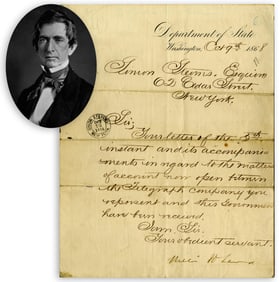 Department of State
Washington, Oct 9th 1868
Simon Stevens, Esquire
62 Cedar Street,
New York.
Sir,
Your letter of the 5th
instant and its accompani-
ments in regard to the matter
of account now open between
the Telegraph Company you
represent and this Government
have been received.
I am Sir,
Your obedient servant,